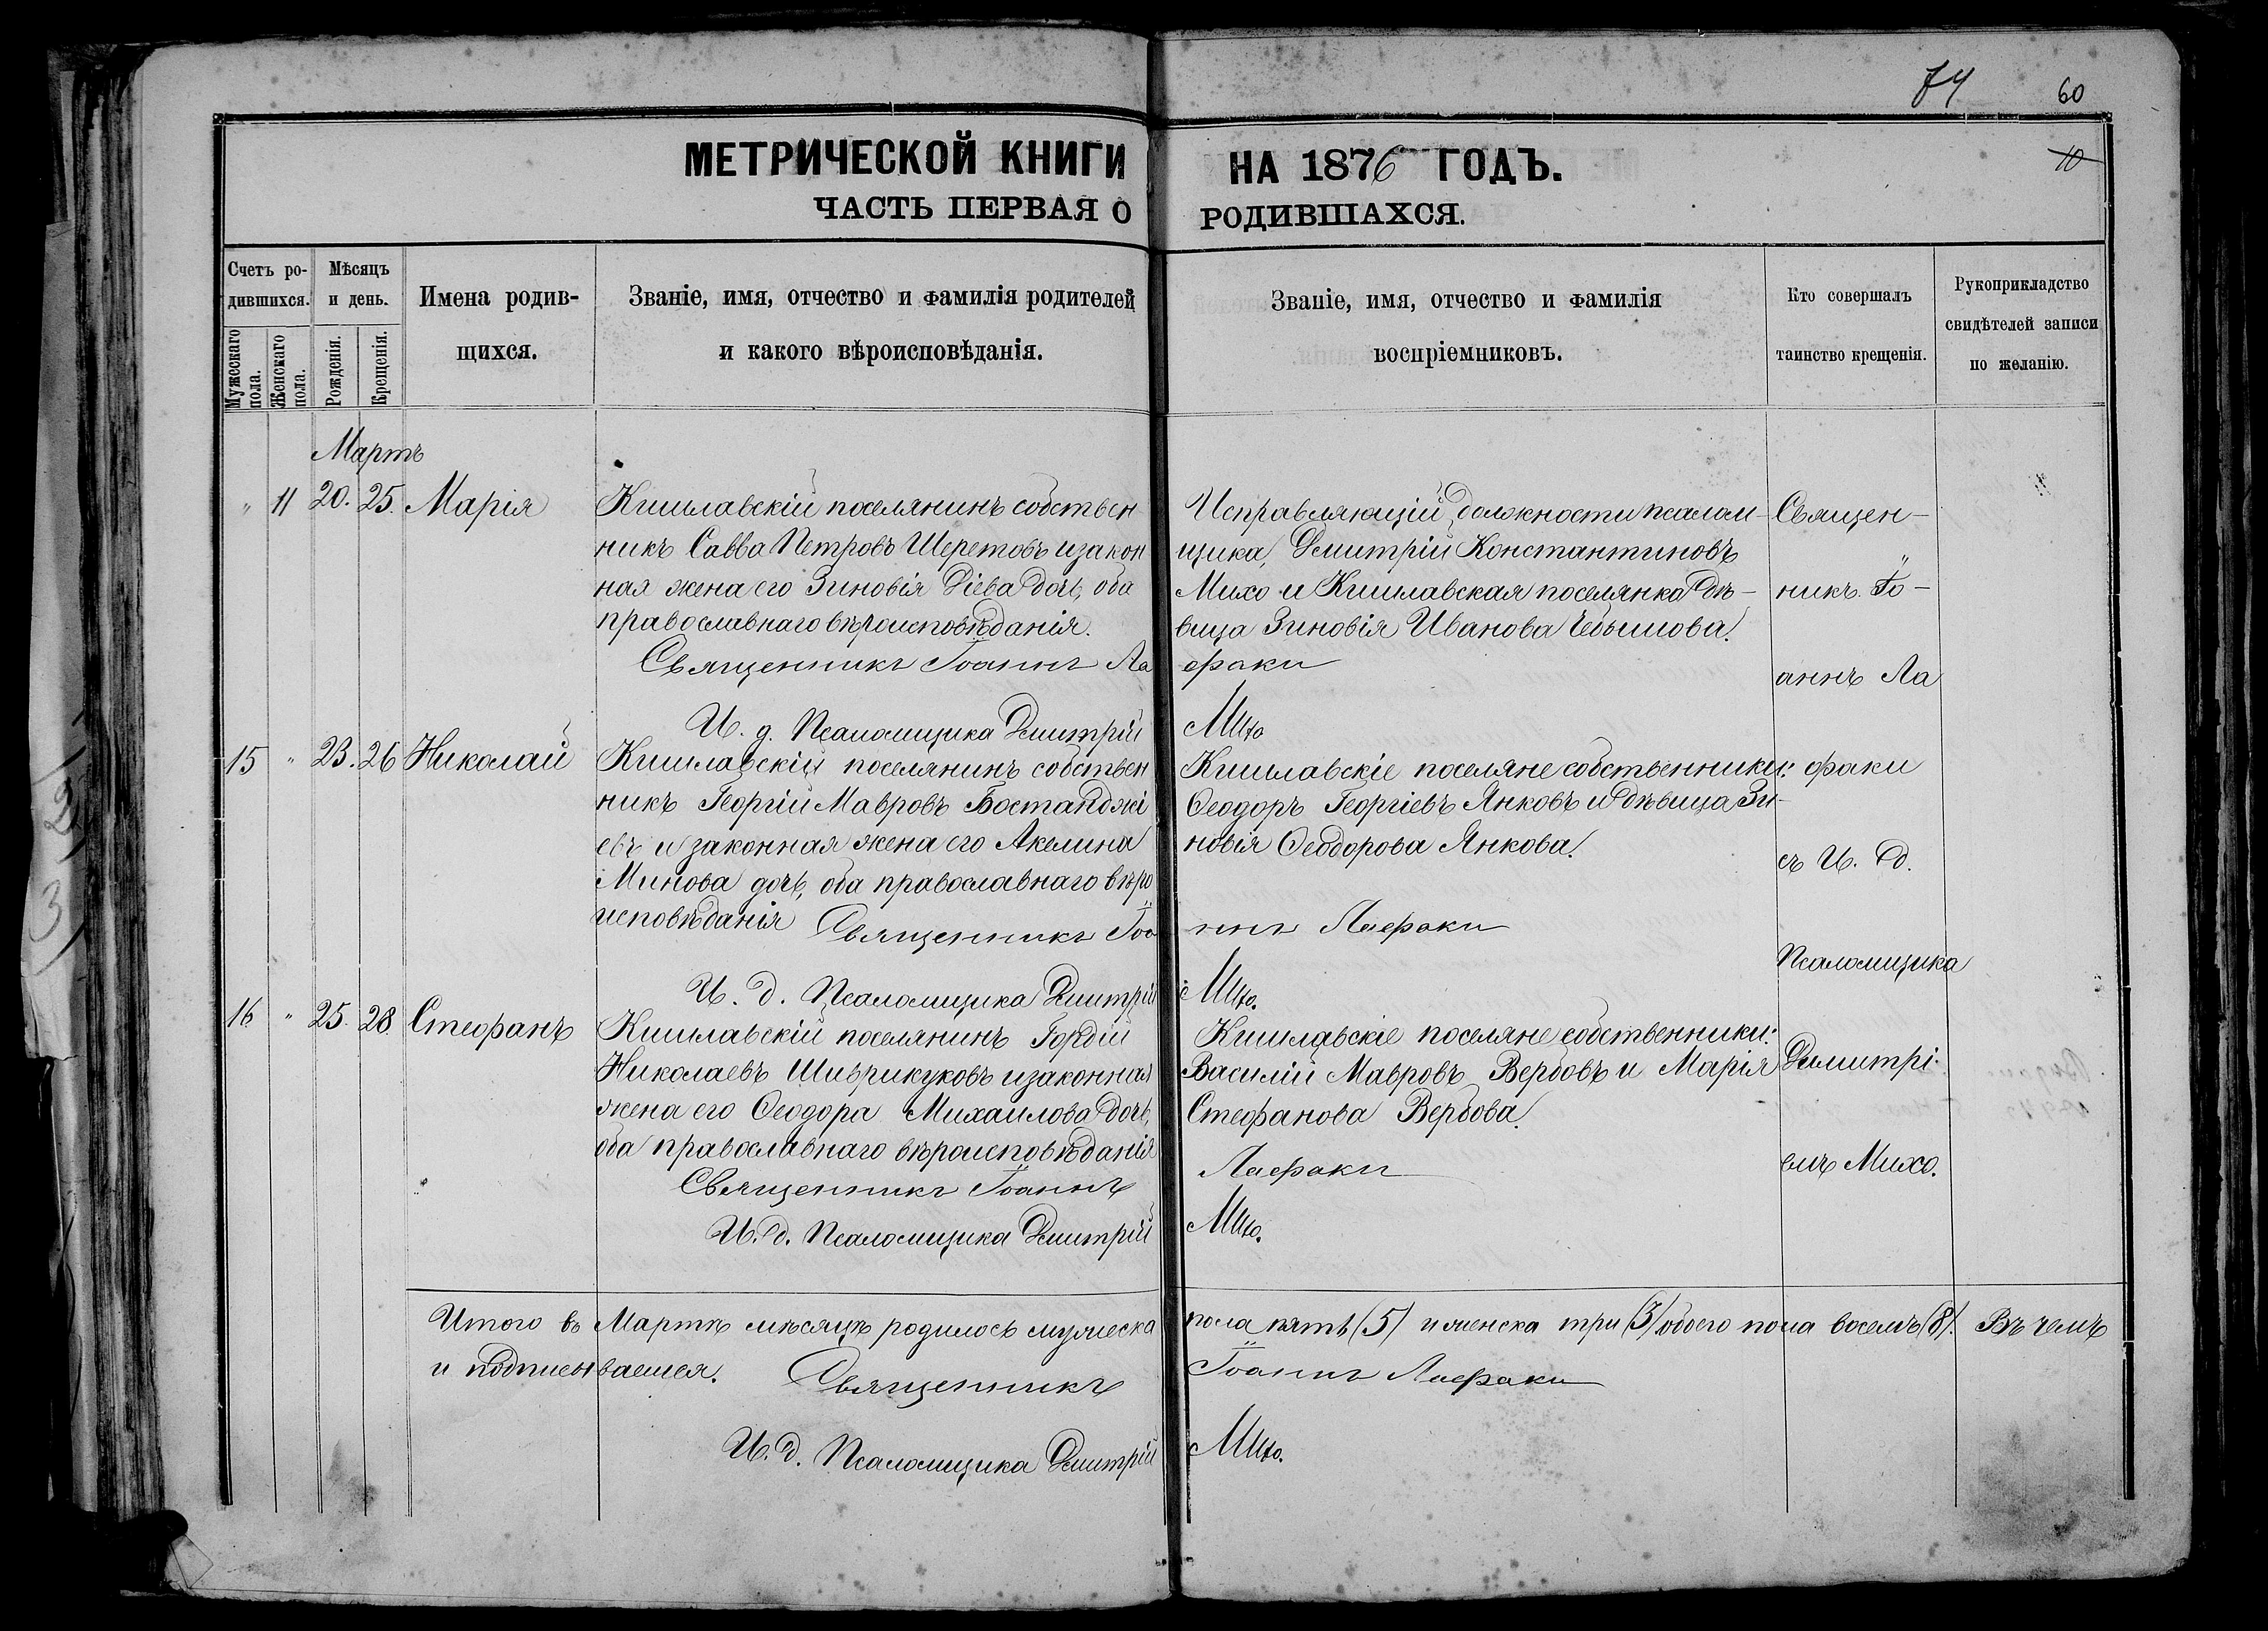 74 60
10
МЕТРИЧЕСКОЙ КНИГИ НА 1876 ГОДЪ.
ЧАСТЬ ПЕРВАЯ О РОДИВШАХСЯ.
Счетъ ро-
дившихся.
Мужескаго пола.
Женскаго пола.
Мѣсяцъ
и день.
Рожденія.
Крещенія.
Имена родив-
щихся.
Званіе, имя, отчество и фамилія родителей
и какого вѣроисповѣданія.
Званіе, имя, отчество и фамилія
воспріемниковъ.
Кто совершалъ
таинство крещенія.
Рукоприкладство
свидѣтелей записи
по желанію.
Мартъ
" 11 20. 25. Марія
Кишлавскій поселянинъ собствен
никъ Савва Петровъ Шеретовъ и закон
ная жена его Зиновія Діева дочь, оба
православнаго вѣроисповѣданія.
Священникъ Іоаннъ Ла
И. д. Псаломщика Димитрій
Исправляющій должности псалом-
щика, Димитрій Константиновъ
Михо и Кишлавская поселянка дѣ-
вица Зиновія Иванова Чебышова.
факи
Михо
15 " 23. 26 Николай
Кишлавскій поселянинъ собствен
никъ Георгій Мавровъ Бостанджі
евъ и законная жена его Акелина
Минова дочь, оба православнаго вѣро
исповѣданія Священникъ Іоа
И. д. Псаломщика Димитрій
Кишлавскіе поселяне собственники:
Ѳеодоръ Георгіевъ Янковъ и дѣвица Зи-
новія Ѳеодорова Янкова.
ннъ Лафаки
Михо.
16 " 25. 28. Стефанъ
Кишлавскій поселянинъ Гордій
Николаевъ Шиврикуковъ и законная
жена его Ѳеодора Михаилова дочь,
оба православнаго вѣроисповѣданія
Священникъ Іоаннъ
И. д. Псаломщика Димитрій
Кишлавскіе поселяне собственники:
Василій Мавровъ Вербовъ и Марія
Стефанова Вербова.
Лафаки
Михо.
Священ-
никъ Іо-
аннъ Ла
факи
съ И. д.
Псаломщика
Димитрі-
емъ Михо.
Итого въ Мартѣ мѣсяцѣ родилось мужеска пола пять (5) и женска три (3) обоего пола восемь (8). Въ чемъ
и подписываемся. Священникъ Іоаннъ Лафаки
И. д. Псаломщика Димитрій Михо.